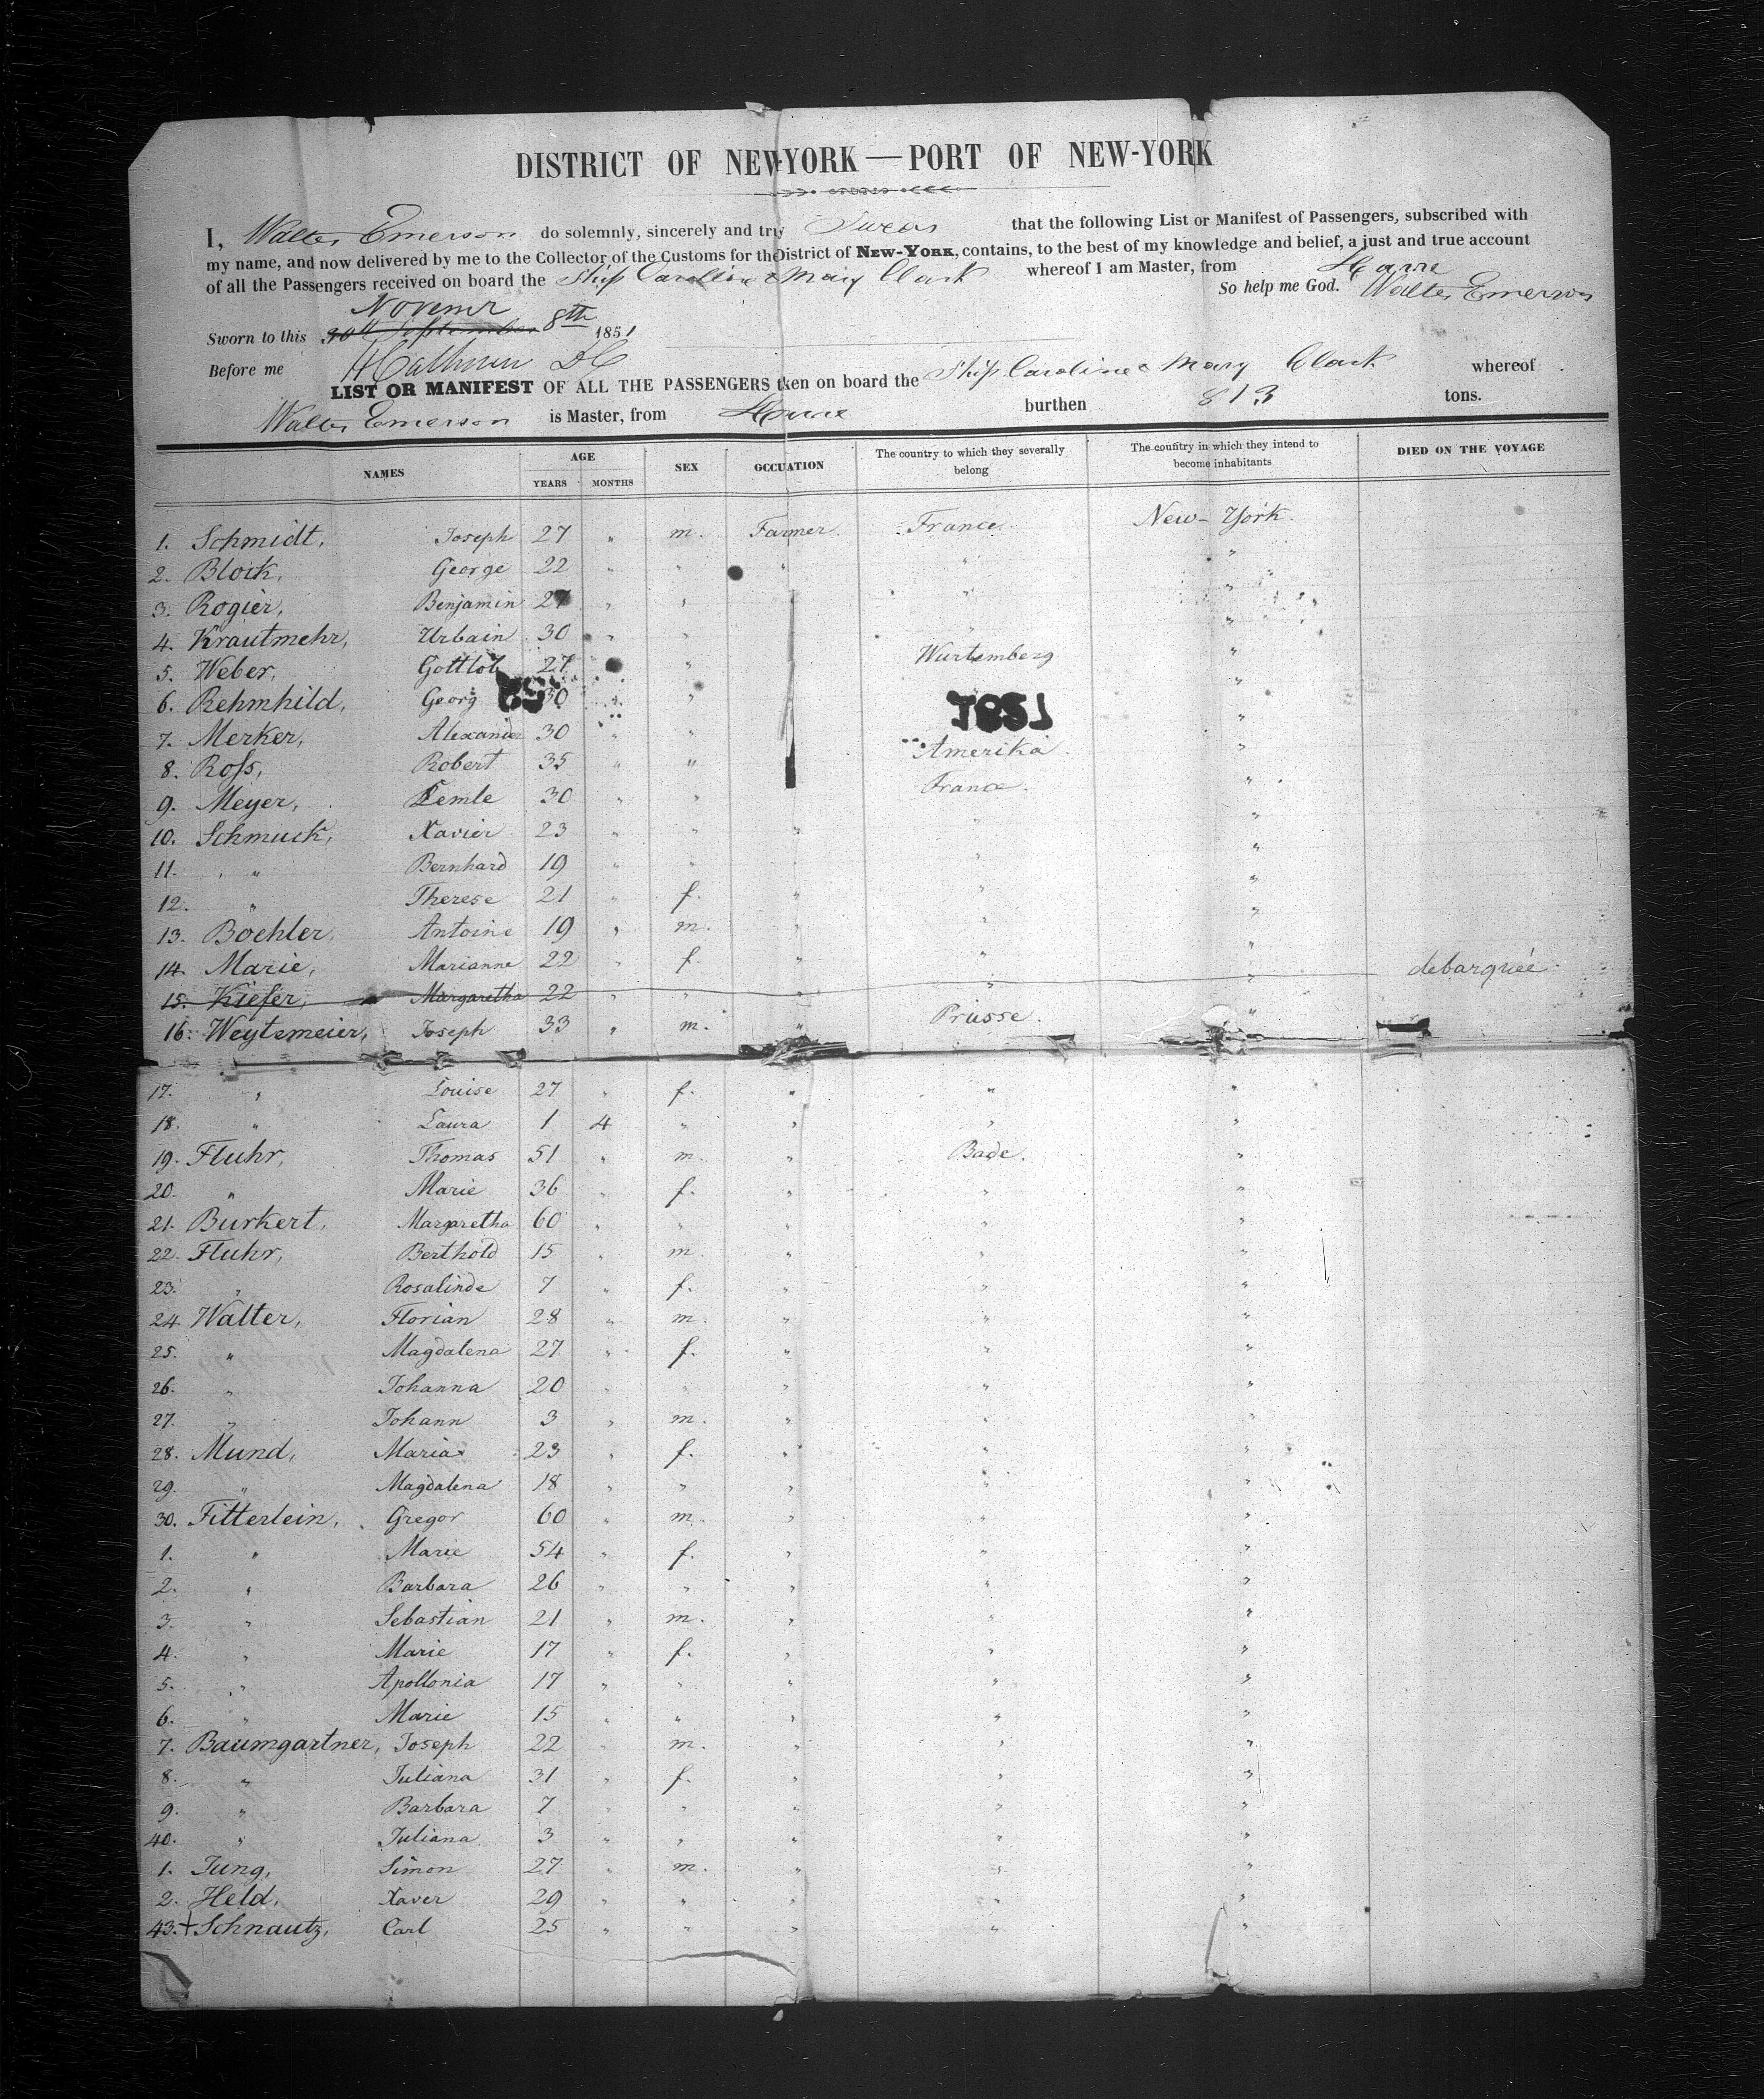 DISTRICT OF NEW-YORK — PORT OF NEW-YORK
I, Walter Emerson do solemnly, sincerely and try Swear that the following List or Manifest of Passengers, subscribed with
my name, and now delivered by me to the Collector of the Customs for the District of NEW-YORK, contains, to the best of my knowledge and belief, a just and true account
of all the Passengers received on board the Ship Caroline & Mary Clark whereof I am Master, from Havre
So help me God. Walter Emerson
Novemr
Sworn to this 30th September 8th 1851
Before me HCalhoun DC
LIST OR MANIFEST OF ALL THE PASSENGERS tken on board the Ship Caroline & Mary Clark whereof
Walter Emerson is Master, from Havre burthen 813 tons.
NAMES AGE YEARS MONTHS SEX OCCUATION The country to which they severally belong The country in which they intend to become inhabitants DIED ON THE VOYAGE
1. Schmidt, Joseph 27 " m. Farmer France New-York.
2. Block, George 22 " " " " "
3. Rogier, Benjamin 27 " " " "
4. Krautmehr, Urbain 30 " " " "
5. Weber, Gottlob 27 " Wurtemberg "
6. Rehmhild, Georg 30 " " "
85 1851
7. Merker, Alexander 30 " " "
8. Ross, Robert 35 " " Amerika "
9. Meyer, 30 " " France "
10. Schmuck, Xavier 23 " " " " "
11. " Bernhard 19 " " " " "
12. " Therese 21 " f. " " "
13. Boehler, Antoine 19 " m. " " "
14. Marie, Marianne 22 " f. " " "
15. Kiefer, Margaretha 22 " " " " " debarquée
16. Weytemeier, Joseph 33 " m. " Prusse. "
17. " Louise 27 " f. " " "
18. " Laura 1 4 " " " "
19. Fluhr, Thomas 51 " m. " Bade. "
20. " Marie 36 " f. " " "
21. Burkert, Margaretha 60 " " " " "
22. Fluhr, Berthold 15 " m. " " "
23. " Rosalinde 7 " f. " " "
24. Walter, Florian 28 " m. " " "
25. " Magdalena 27 " f. " " "
26. " Johanna 20 " " " " "
27. " Johann 3 " m. " " "
28. Mund, Maria 23 " f. " " "
29. " Magdalena 18 " " " " "
30. Fitterlein, Gregor 60 " m. " " "
1. " Marie 54 " f. " " "
2. " Barbara 26 " " " " "
3. " Sebastian 21 " m. " " "
4. " Marie 17 " f. " " "
5. " Apollonia 17 " " " " "
6. " Marie 15 " " " " "
7. Baumgartner, Joseph 22 " m. " " "
8. " Juliana 31 " f. " " "
9. " Barbara 7 " " " " "
40. " Juliana 3 " " " " "
1. Jung, Simon 27 " m. " " "
2. Held, Xaver 29 " " " " "
43. + Schnautz, Carl 25 " " " " "